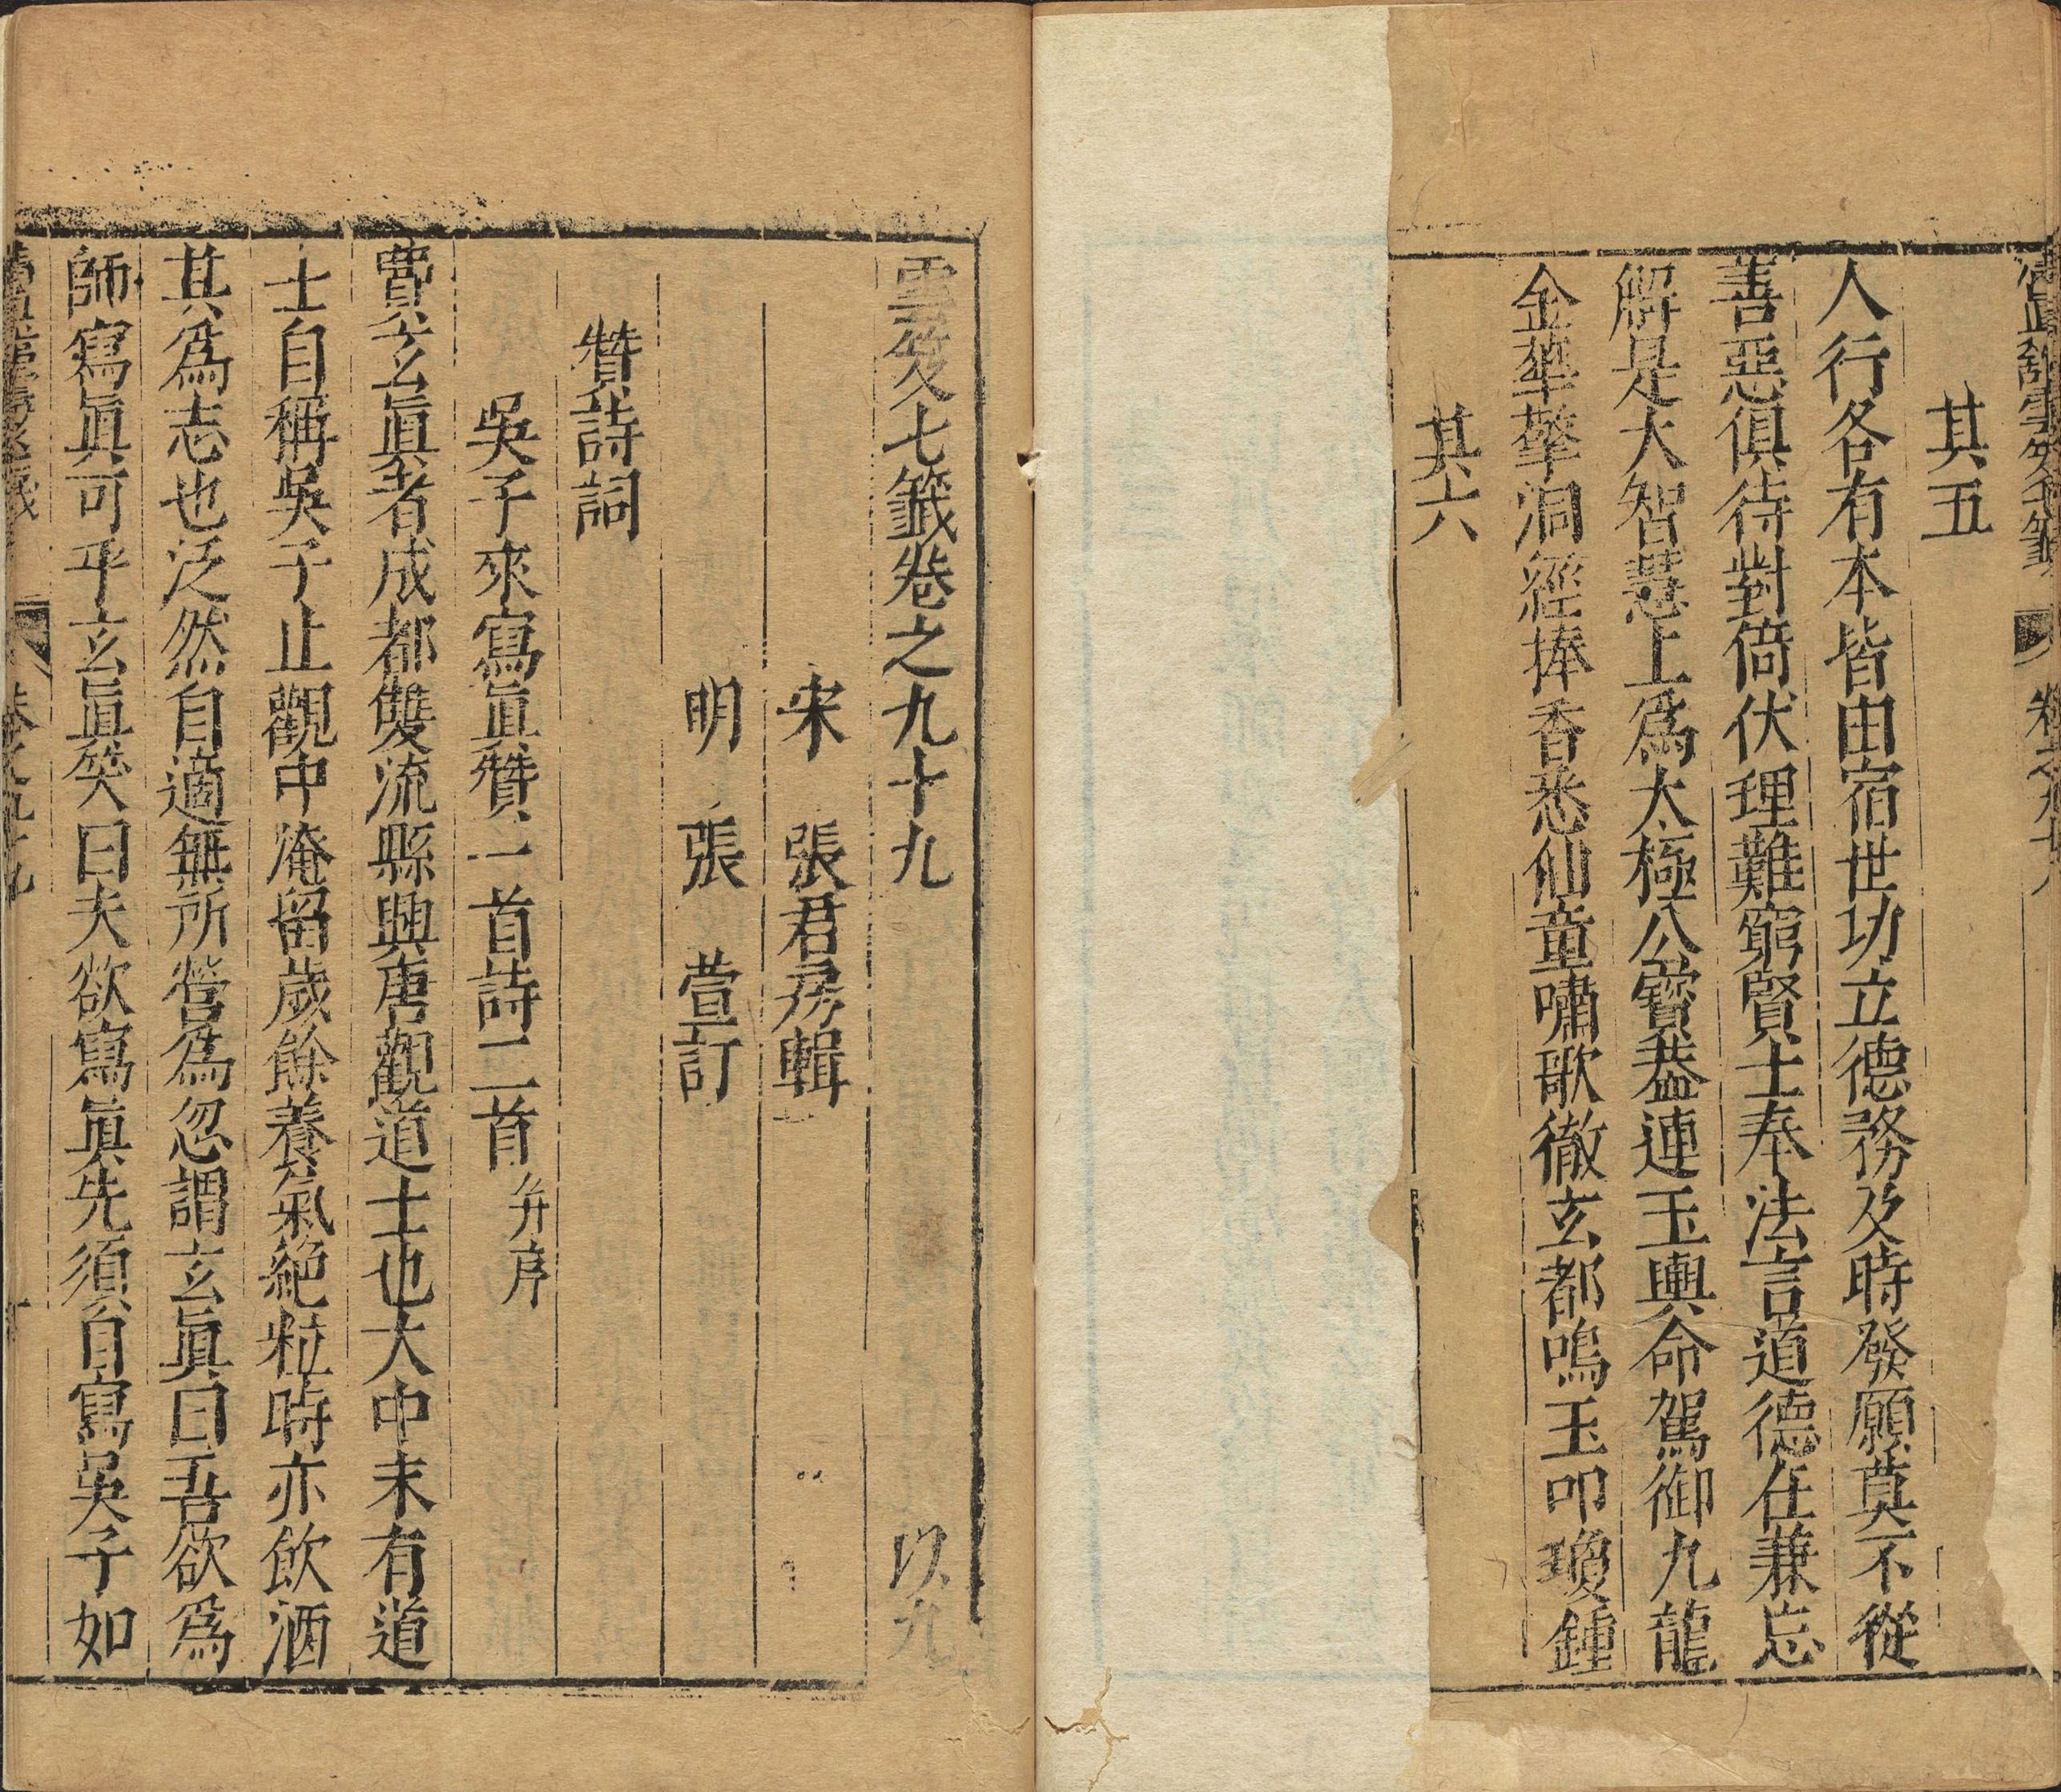 其五
人行各有本皆由宿世功立德務及時發願莫不從
善惡俱待對倚伏理難窮賢士奉法言道德在兼忘
解是大智慧上爲太極公寶蓋連玉輿命駕御九龍
金華擎洞經捧香悉仙童嘯歌徹玄都鳴玉叩瓊鍾
其六
雲笈七籤卷之九十九 以九
宋 張君房輯
明 張 萱訂
贊詩詞
吳子來寫眞贊一首詩二首并序
費玄眞者成都雙流縣興唐觀道士也大中末有道
士自稱吳子止觀中淹留歲餘養氣絕粒時亦飲酒
其爲志也泛然自適無所營爲忽謂玄眞曰吾欲爲
師寫眞可乎玄眞笑曰夫欲寫眞先須自寫吳子如